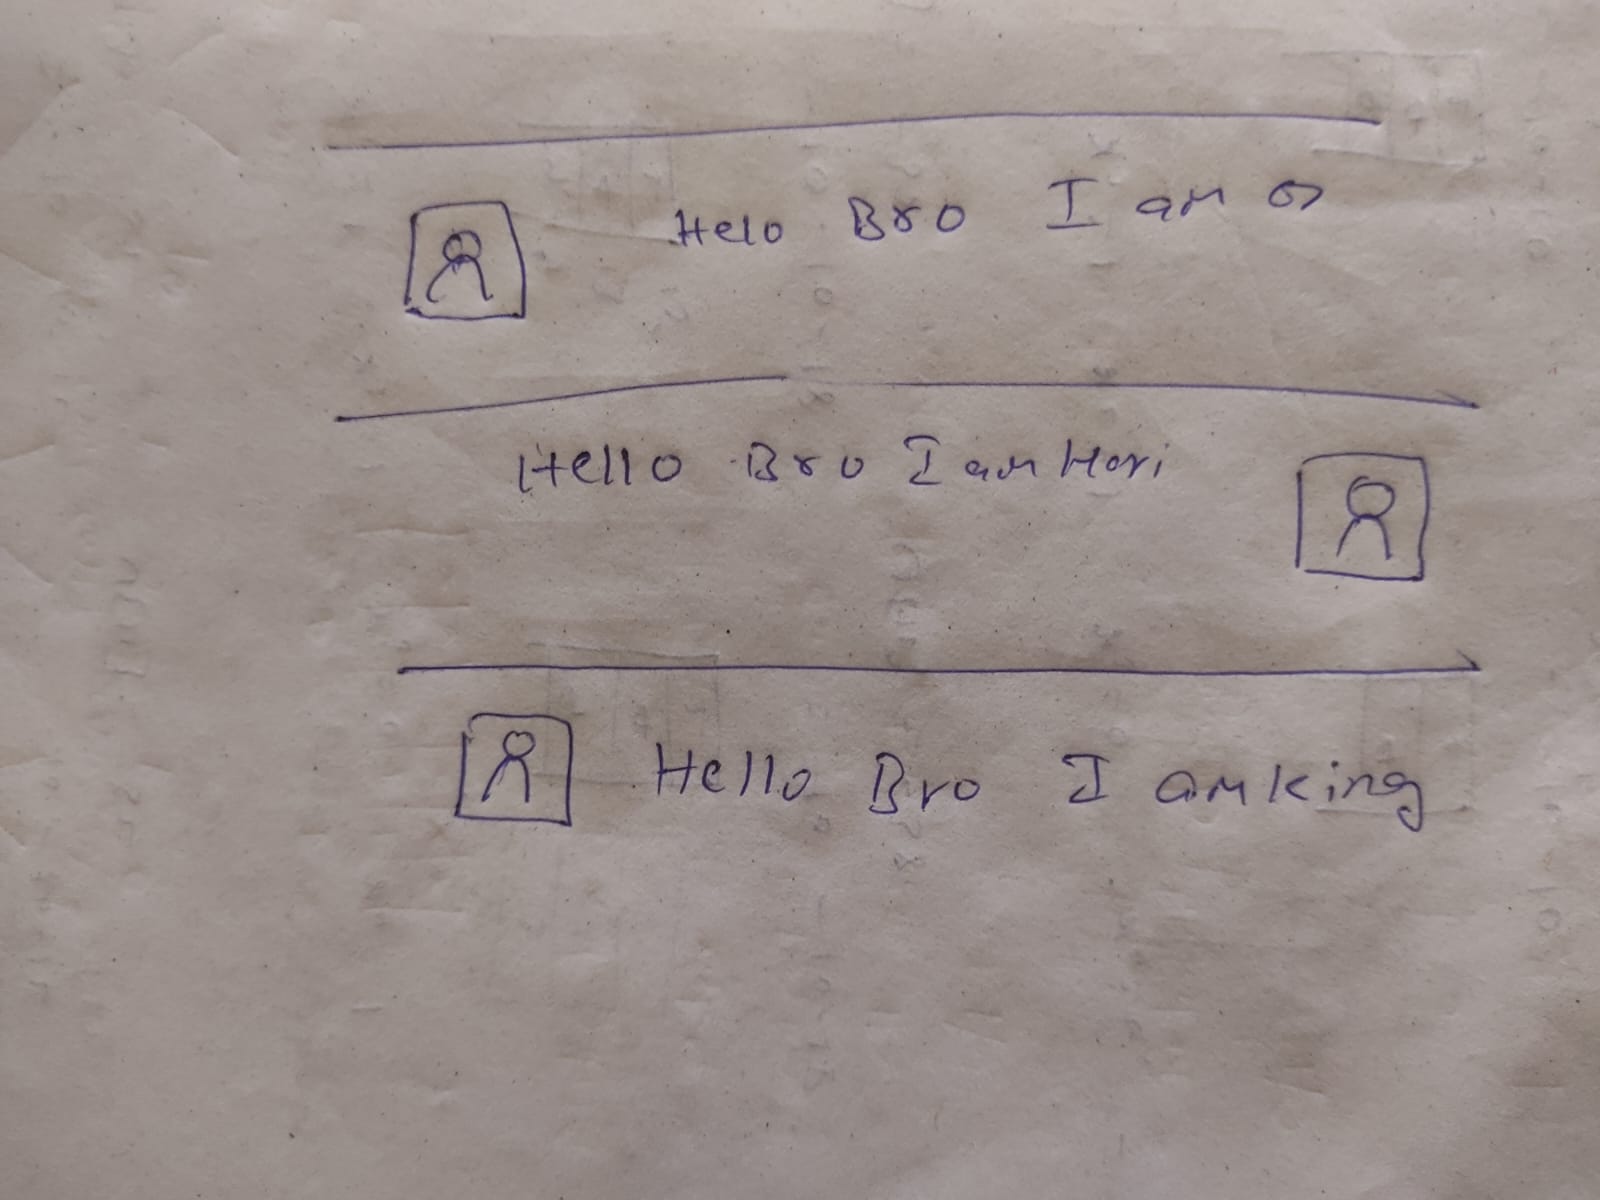 Helo Bro I am
Hello Bro I am Hari
Hello Bro I am king